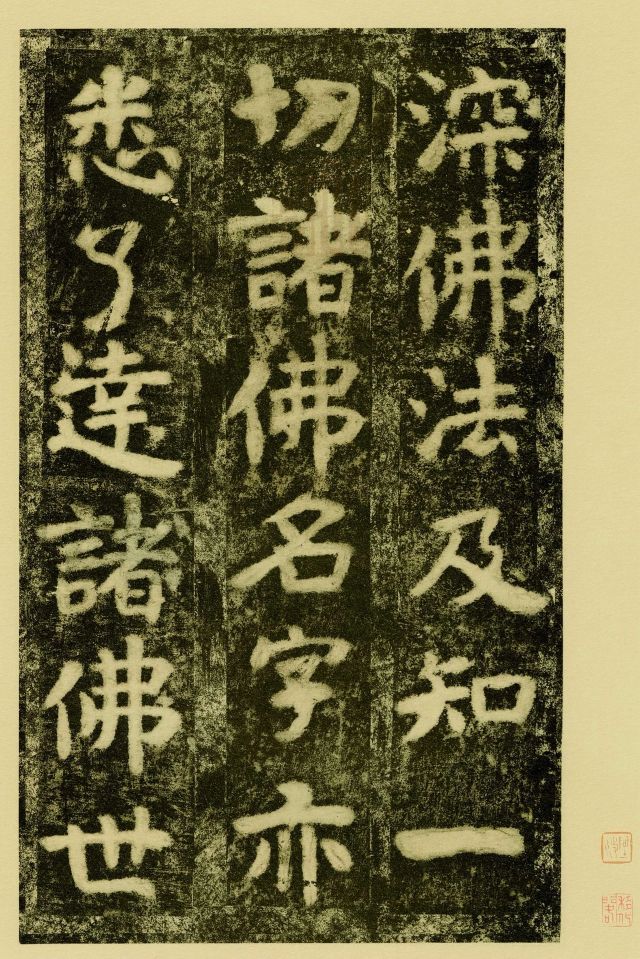 深佛法及知一
切諸佛名字亦
悉了達諸佛世